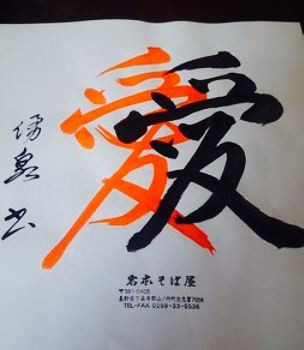 愛
愛
書
岩本そば屋
〒381-0405
長野県下高井郡山ノ内町北志賀7956
TEL-FAX 0269-33-6536